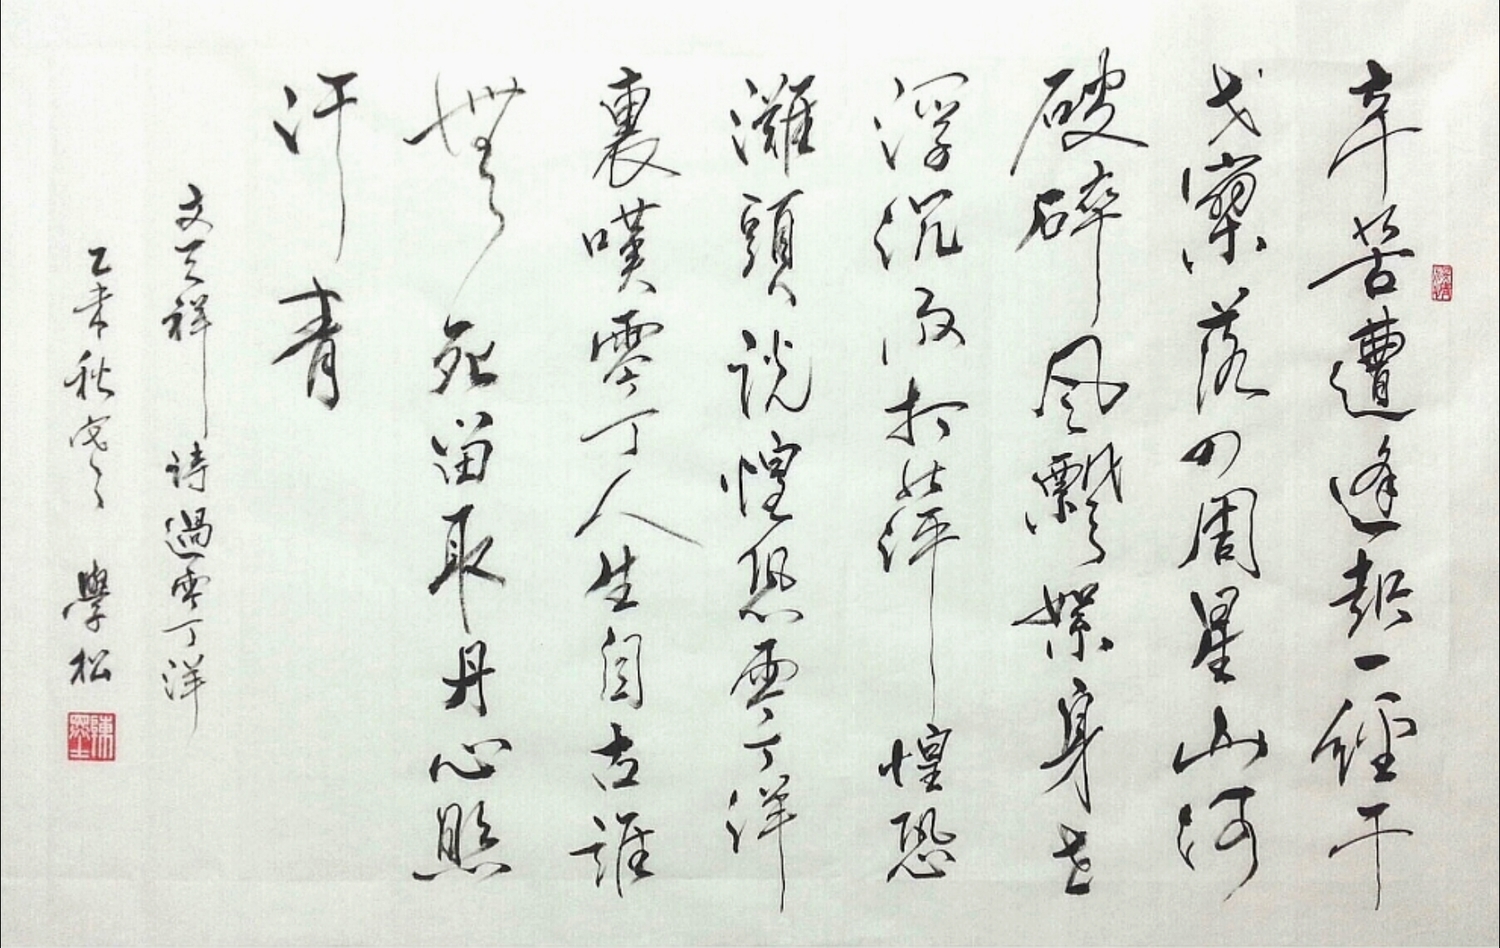 辛苦遭逢起一經干
戈寥落四周星山河
破碎風飄絮身世
浮沉雨打萍惶恐
灘頭說惶恐零丁洋
裏嘆零丁人生自古誰
無死留取丹心照
汗青
文天祥 詩 過零丁洋
乙未秋 學松